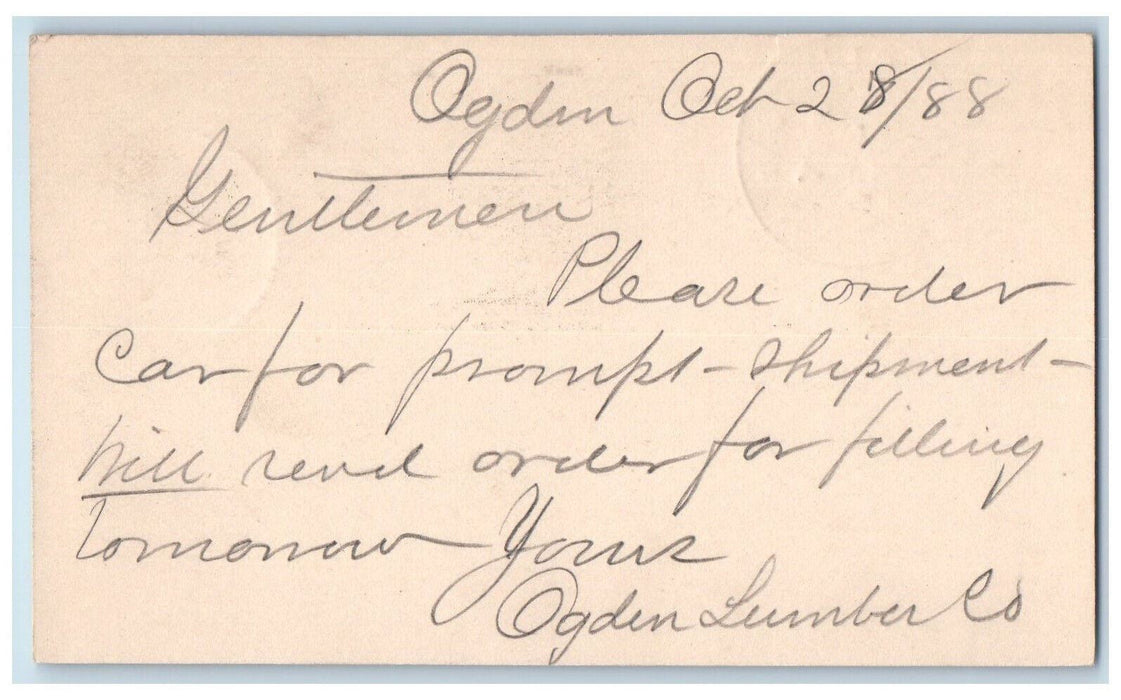 Ogden Oct 28/88
Gentlemen
Please order
Car for prompt - shipment -
Will send order for filling
tomorrow Yours
Ogden Lumber Co